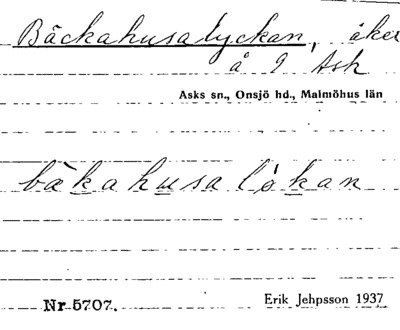 Bäckahusalyckan, åker
å 9 Ask
Asks sn., Onsjö hd., Malmöhus län
bàkahusaĺøkan
Nr 5707. Erik Jehpsson 1937